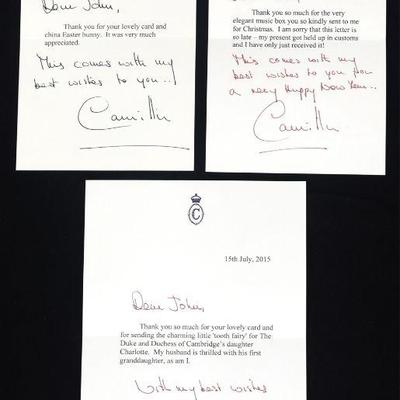 Dear John,
Thank you for your lovely card and
china Easter bunny. It was very much
appreciated.
This comes with my
best wishes to you...
Camilla
Thank you so much for the very
elegant music box you so kindly sent to me
for Christmas. I am sorry that this letter is
so late – my present got held up in customs
and I have only just received it!
This comes with my
best wishes to you for
a very Happy New Year..
Camilla
C
15th July, 2015
Dear John,
Thank you so much for your lovely card and
for sending the charming little 'tooth fairy' for The
Duke and Duchess of Cambridge's daughter
Charlotte. My husband is thrilled with his first
granddaughter, as am I.
With my best wishes